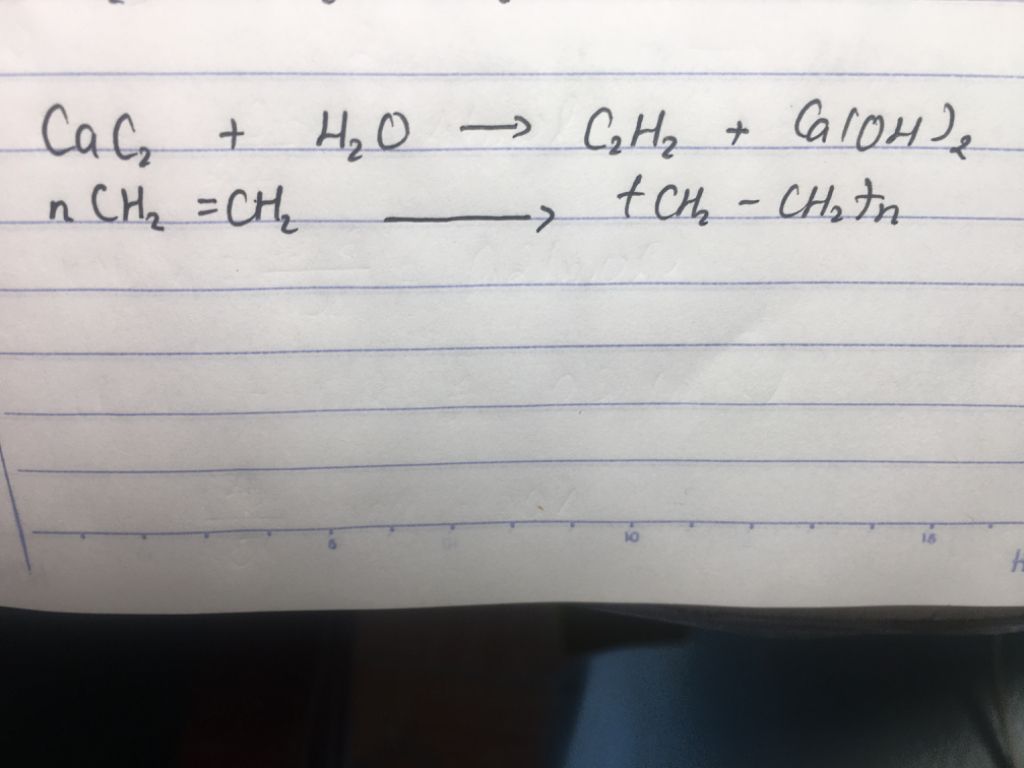 CaC₂ + H₂O → C₂H₂ + Ca(OH)₂
nCH₂ = CH₂ → +CH₂ - CH₂+n
5 10 15